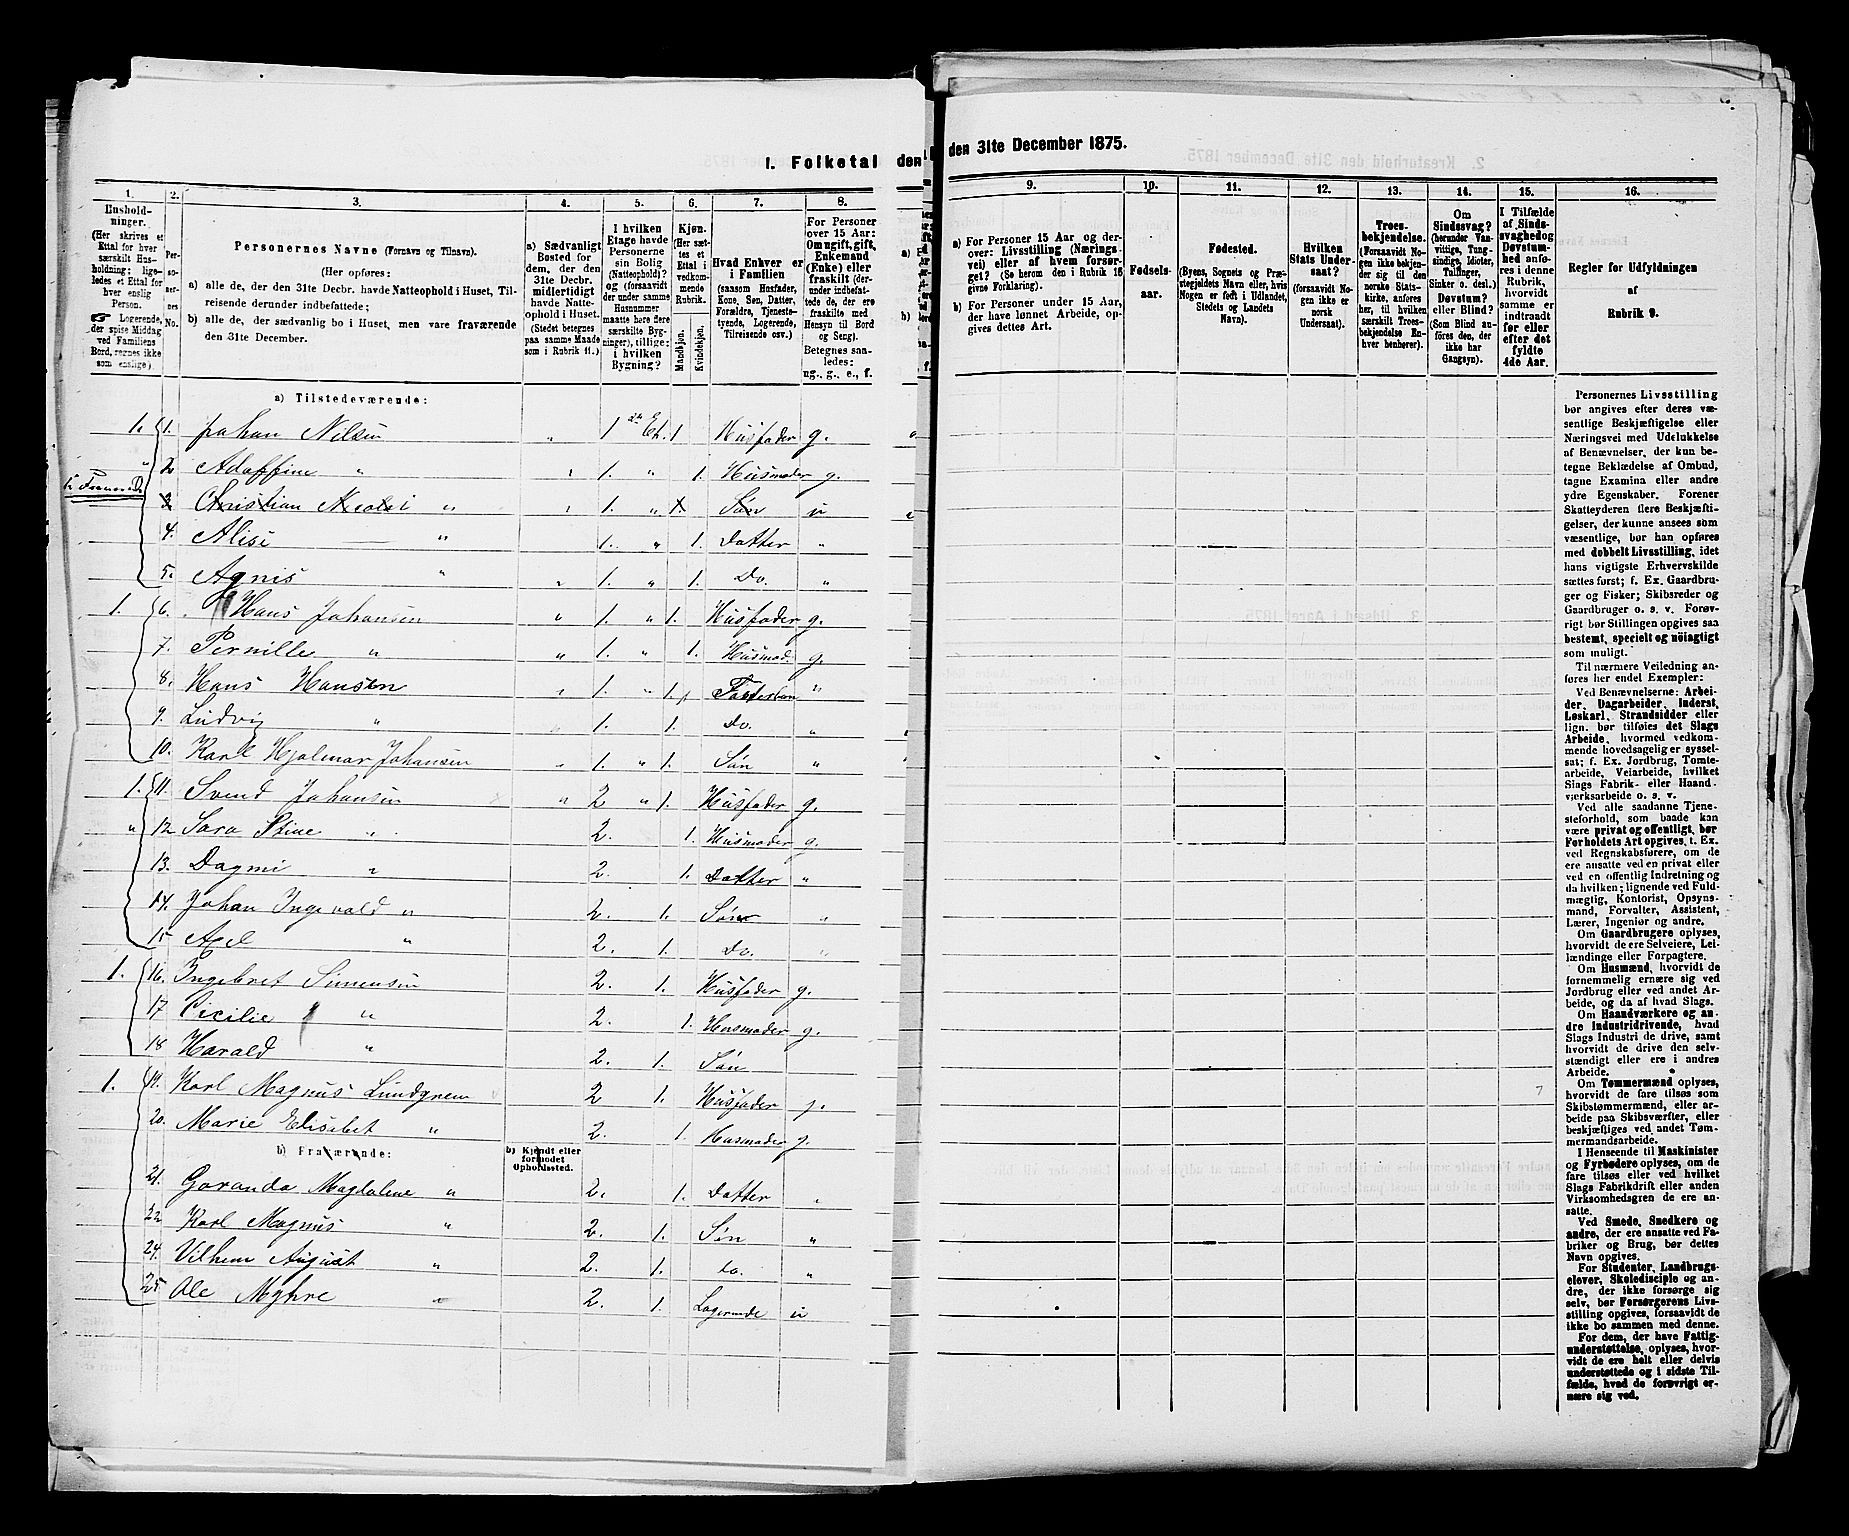 1. Folketal den
1.
2.
3.
4.
5.
6.
7.
8.
Husholdninger.
(Her skrives et Ettal for hver særskilt Husholdning; ligeledes et Ettal for hver enslig Person.
☞ Logerende, der spise Middag ved Familiens Bord, regnes ikke som enslige).
Personernes No.
Personernes Navne (Fornavn og Tilnavn).
(Her opføres:
a) alle de, der den 31te Decbr. havde Natteophold i Huset, Tilreisende derunder indbefattede;
b) alle de, der sædvanlig bo i Huset, men vare fraværende den 31te December.
a) Sædvanligt Bosted for dem, der den 31te Decbr. midlertidigt havde Natteophold i Huset.
(Stedet betegnes paa samme Maade som i Rubrik 11.)
I hvilken Etage havde Personerne sin Bolig (Natteophold)?
(forsaavidt der under samme Husnummer maatte høre flere særskilte Bygninger), tillige: i hvilken Bygning?
Kjøn.
(Her sættes et Ettal i vedkommende Rubrik.
Mandkjøn.
Kvindekjøn.
Hvad Enhver er i Familien
(saasom Husfader, Kone, Søn, Datter, Forældre, Tjenestetyende, Logerende, Tilreisende osv.)
For Personer over 15 Aar: Om ugift, gift, Enkemand (Enke) eller fraskilt (derunder indbefattede de, der ere fraskilte med Hensyn til Bord og Seng).
Betegnes saaledes: ug., g., e., f.
a) Tilstedeværende:
1. 1. Johan Nilsen " 1 Et. 1. Husfader g.
" 2 Adolfine " " 1. " 1. Husmoder g.
3 Christian " " 1. " 1. Søn u
4. Alise " 1. " 1. Datter "
5. Agnis " " 1. " 1. Do. "
1. 6. Hans Johansen " 1. " 1. Husfader g.
7. Pernille " " 1. " 1. Husmod. g.
8. Hans Hansen " 1. " 1. "
9. Ludvig " 1. 1. Do. "
10. Karl Hjalmar Johansen " 1. " 1. Søn "
1. 11. Svend Johansen " 2 " 1. Husfader g.
" 12 Sara Stine " 2. 1. Husmoder g.
13. Dagmi " 2. 1. Datter "
14. Johan Ingevald " 2. 1. Søn "
15 Axel " 2. 1. Do. "
1. 16. Ingebret Simensen 2. 1. Husfader g.
17 Cicilie " 2. 1. Husmoder g.
18 Harald " 2. 1. Søn
1. 19. Karl Magnus Lundgren 2 1. Husfader g.
20. Marie Elisabet " 2. 1. Husmoder g.
b) Fraværende:
b) Kjendt eller formodet Opholdssted.
21. Magdalene " 2. 1. Datter "
22 Karl Magnus " 2. 1. Søn "
24. Vilhem August " 2. 1. do. "
25 Ole Myhre " 2. 1. Logerende u
den 31te December 1875.
9.
10.
11.
12.
13.
14.
15.
16.
a) For Personer 15 Aar og derover: Livsstilling (Næringsvei) eller af hvem forsørget? (Se herom den i Rubrik 16 givne Forklaring).
b) For Personer under 15 Aar, der have lønnet Arbeide, opgives dettes Art.
Fødselsaar.
Fødested.
(Byens, Sognets og Præstegjeldets Navn eller, hvis Nogen er født i Udlandet, Stedets og Landets Navn).
Hvilken Stats Undersaat?
(forsaavidt Nogen ikke er norsk Undersaat).
Troesbekjendelse.
(Forsaavidt Nogen ikke bekjender sig til den norske Statskirke, anføres her, til hvilken særskilt Troesbekjendelse Enhver henhører).
Om Sindssvag?
(herunder Vanvittige, Tungsindige, Idioter, Tullinger, Sinker o. desl.)
Døvstum? eller Blind?
(Som Blind anføres den, der ikke har Gangsyn).
I Tilfælde af Sindssvaghed og Døvstumhed anføres i denne Rubrik, hvorvidt samme er indtraadt før eller efter det fyldte 4de Aar.
Regler for Udfyldningen
af
Rubrik 9.
Personernes Livsstilling
bør angives efter deres væsentlige
Beskjæftigelse eller
Næringsvei med Udelukkelse
af Benævnelser, der kun betegne
Beklædelse af Ombud,
tagne Examina eller andre
ydre Egenskaber. Forener
Skatteyderen flere Beskjæftigelser,
der kunne ansees som
væsentlige, bør han opføres
med dobbelt Livsstilling, idet
hans vigtigste Erhvervskilde
sættes først; f. Ex. Gaardbruger
og Fisker; Skibsreder og
Gaardbruger o. s. v. Forøvrigt
bør Stillingen opgives saa
bestemt, specielt og nøiagtigt
som muligt.
Til nærmere Veiledning anføres
her endel Exempler:
Ved Benævnelserne: Arbeider,
Dagarbeider, Inderst,
Løskarl, Strandsidder eller
lign. bør tilføies det Slags
Arbeide, hvormed vedkommende
hovedsagelig er sysselsat;
f. Ex. Jordbrug, Tomtearbeide,
Veiarbeide, hvilket
Slags Fabrik- eller Haandværksarbeide
o. s. v.
Ved alle saadanne Tjenesteforhold,
som baade kan
være privat og offentligt, bør
Forholdets Art opgives, t. Ex.
ved Regnskabsførere, om de
ere ansatte ved en privat eller
ved en offentlig Indretning og
da hvilken; lignende ved Fuldmægtig,
Kontorist, Opsynsmand,
Forvalter, Assistent,
Lærer, Ingeniør og andre.
Om Gaardbrugere oplyses,
hvorvidt de ere Selveiere, Leilændinge
eller Forpagtere.
Om Husmænd, hvorvidt de
fornemmelig ernære sig ved
Jordbrug eller ved andet Arbeide,
og da af hvad Slags.
Om Haandværkere og andre
Industridrivende, hvad
Slags Industri de drive, samt
hvorvidt de drive den selvstændigt
eller ere i andres
Arbeide.
Om Tømmermænd oplyses,
hvorvidt de fare tilsøs som
Skibstømmermænd, eller arbeide
paa Skibsværfter, eller
beskjæftiges ved andet Tømmermandsarbeide.
I Henseende til Maskinister
og Fyrbødere oplyses, om de
fare tilsøs eller ved hvilket
Slags Fabrikdrift eller anden
Virksomhedsgren de ere ansatte.
Ved Smede, Snedkere og
andre, der ere ansatte ved Fabriker
og Brug, bør dettes
Navn opgives.
For Studenter, Landbrugselever,
Skoledisciple og andre,
der ikke forsørge sig
selv, bør Forsørgerens Livsstilling
opgives, forsaavidt de
ikke bo sammen med denne.
For dem, der have Fattigunderstøttelse,
oplyses, hvorvidt
de ere helt eller delvis
understøttede og i sidste Tilfælde,
hvad de forøvrigt ernære
sig ved.